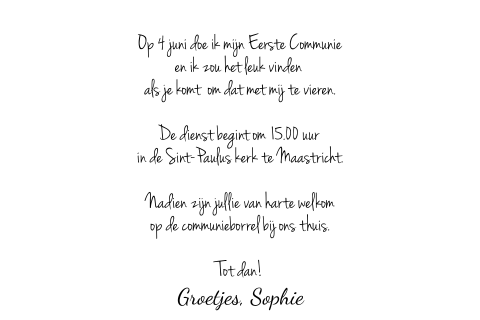 Op 4 juni doe ik mijn Eerste Communie
en ik zou het leuk vinden
als je komt om dat met mij te vieren.
De dienst begint om 15.00 uur
in de Sint-Paulus kerk te Maastricht.
Nadien zijn jullie van harte welkom
op de communieborrel bij ons thuis.
Tot dan!
Groetjes, Sophie